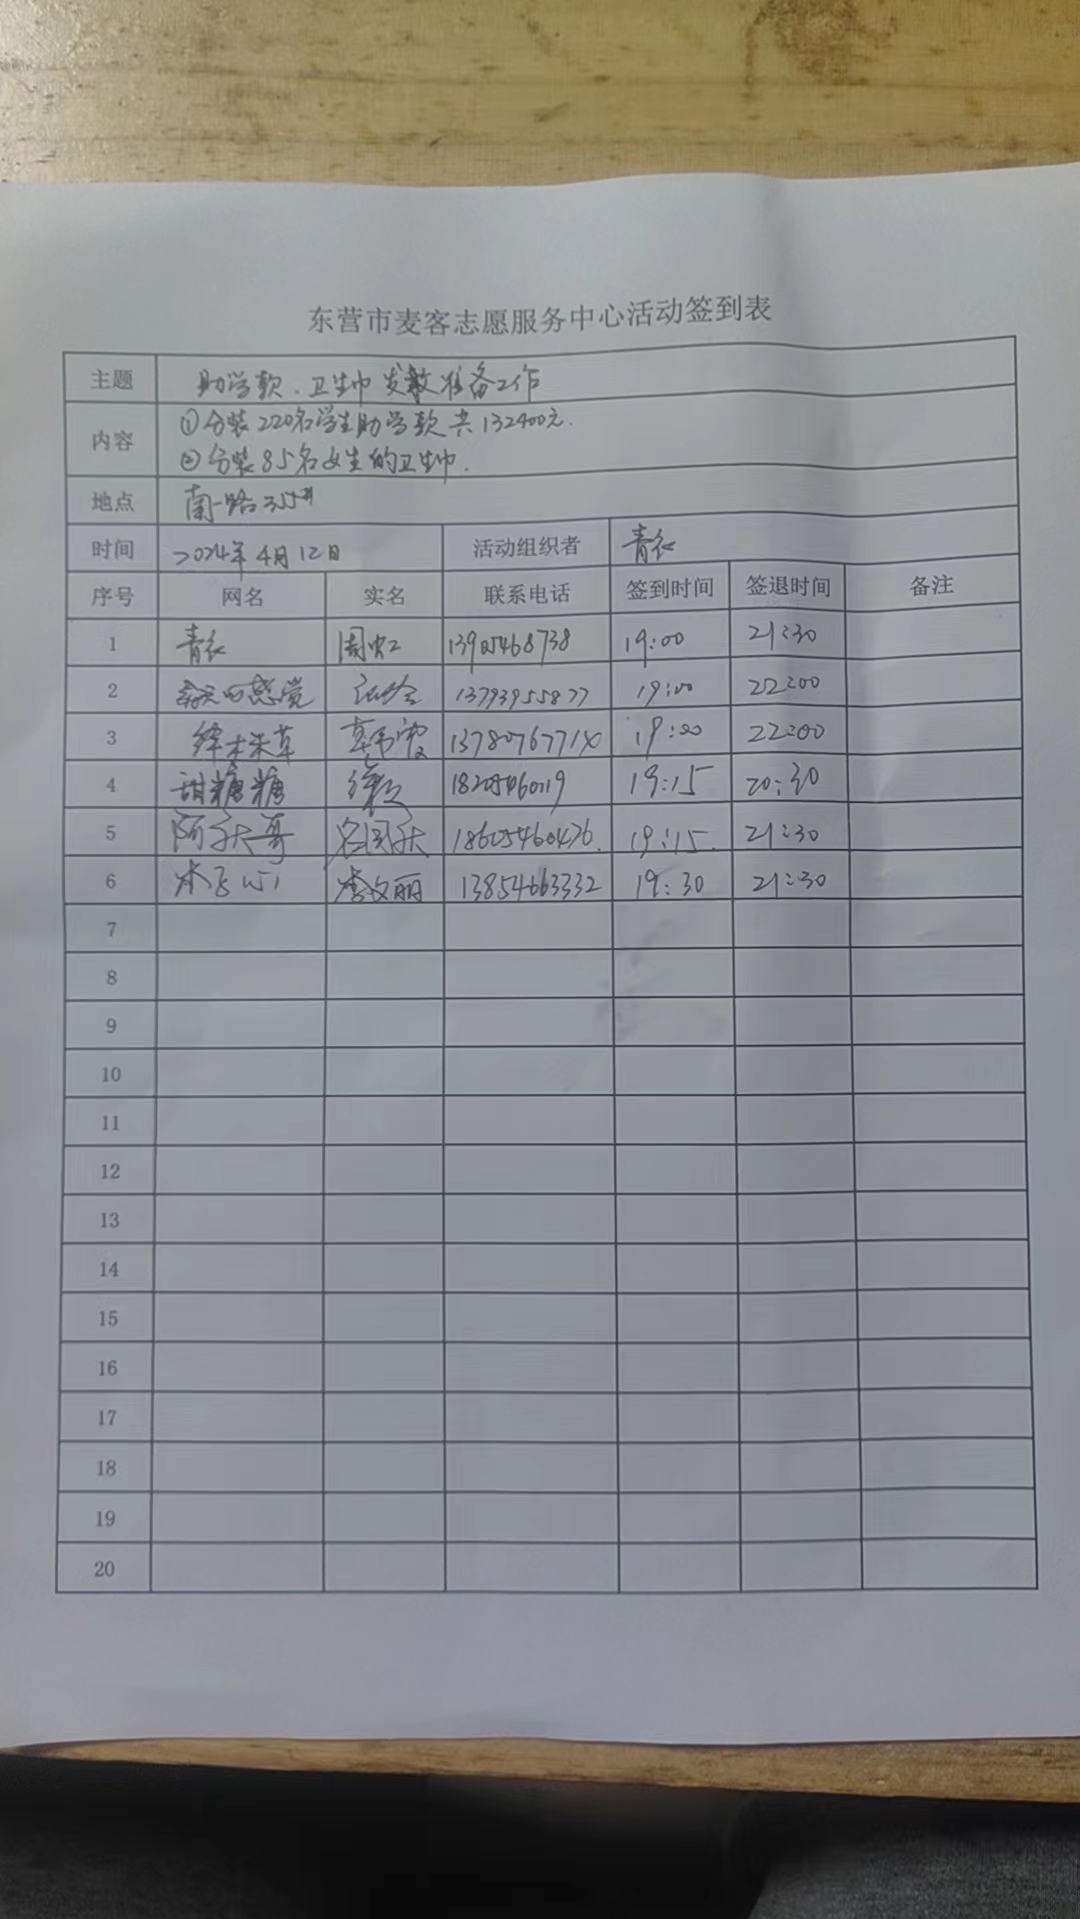 东营市麦客志愿服务中心活动签到表
主题 助学款、卫生巾发散准备工作
内容 ①分装220名学生助学款共132400元.
②分装85名女生的卫生巾.
地点 南一路355#
时间 2024年4月12日 活动组织者 青衣
序号 网名 实名 联系电话 签到时间 签退时间 备注
1 青衣 周虹 13905468738 19:00 21:30
2 的感觉 13793955877 19:00 22:00
3 绛木朱草 1378076771X 19:00 22:00
4 甜糖糖 19:15 20:30
5 18605460476. 19:15. 21:30
6 李文丽 13854663332 19:30 21:30
7
8
9
10
11
12
13
14
15
16
17
18
19
20